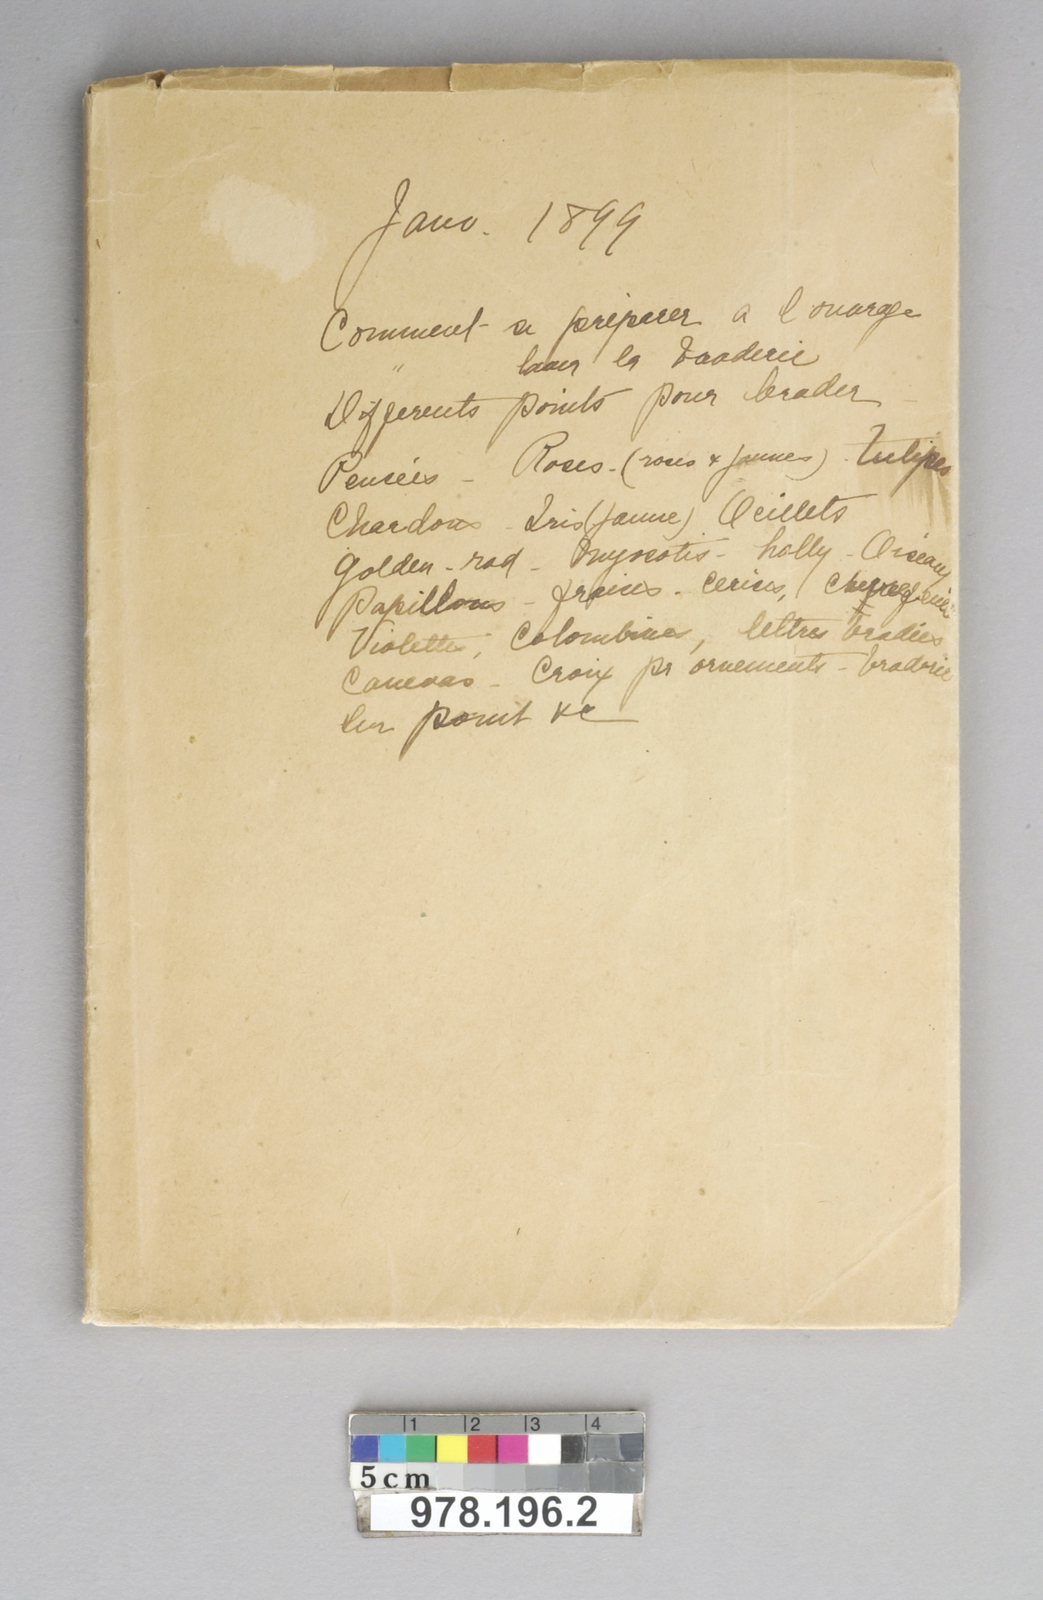 Janv. 1899
Comment se préparer a l'ouvrage
" laver la broderie
Differents points pour broder
Pensées - Roses - (roses & jaunes) - Tulipes
Chardons - Iris (jaune) Oeillets
Golden-rod - Myosotis - holly - Oiseaux
Papillons - fraises - cerises,
Violettes, Colombines, lettres brodées
Canevas - Croix pr ornements - broderie
sur point &c
1 2 3 4
5cm
978.196.2